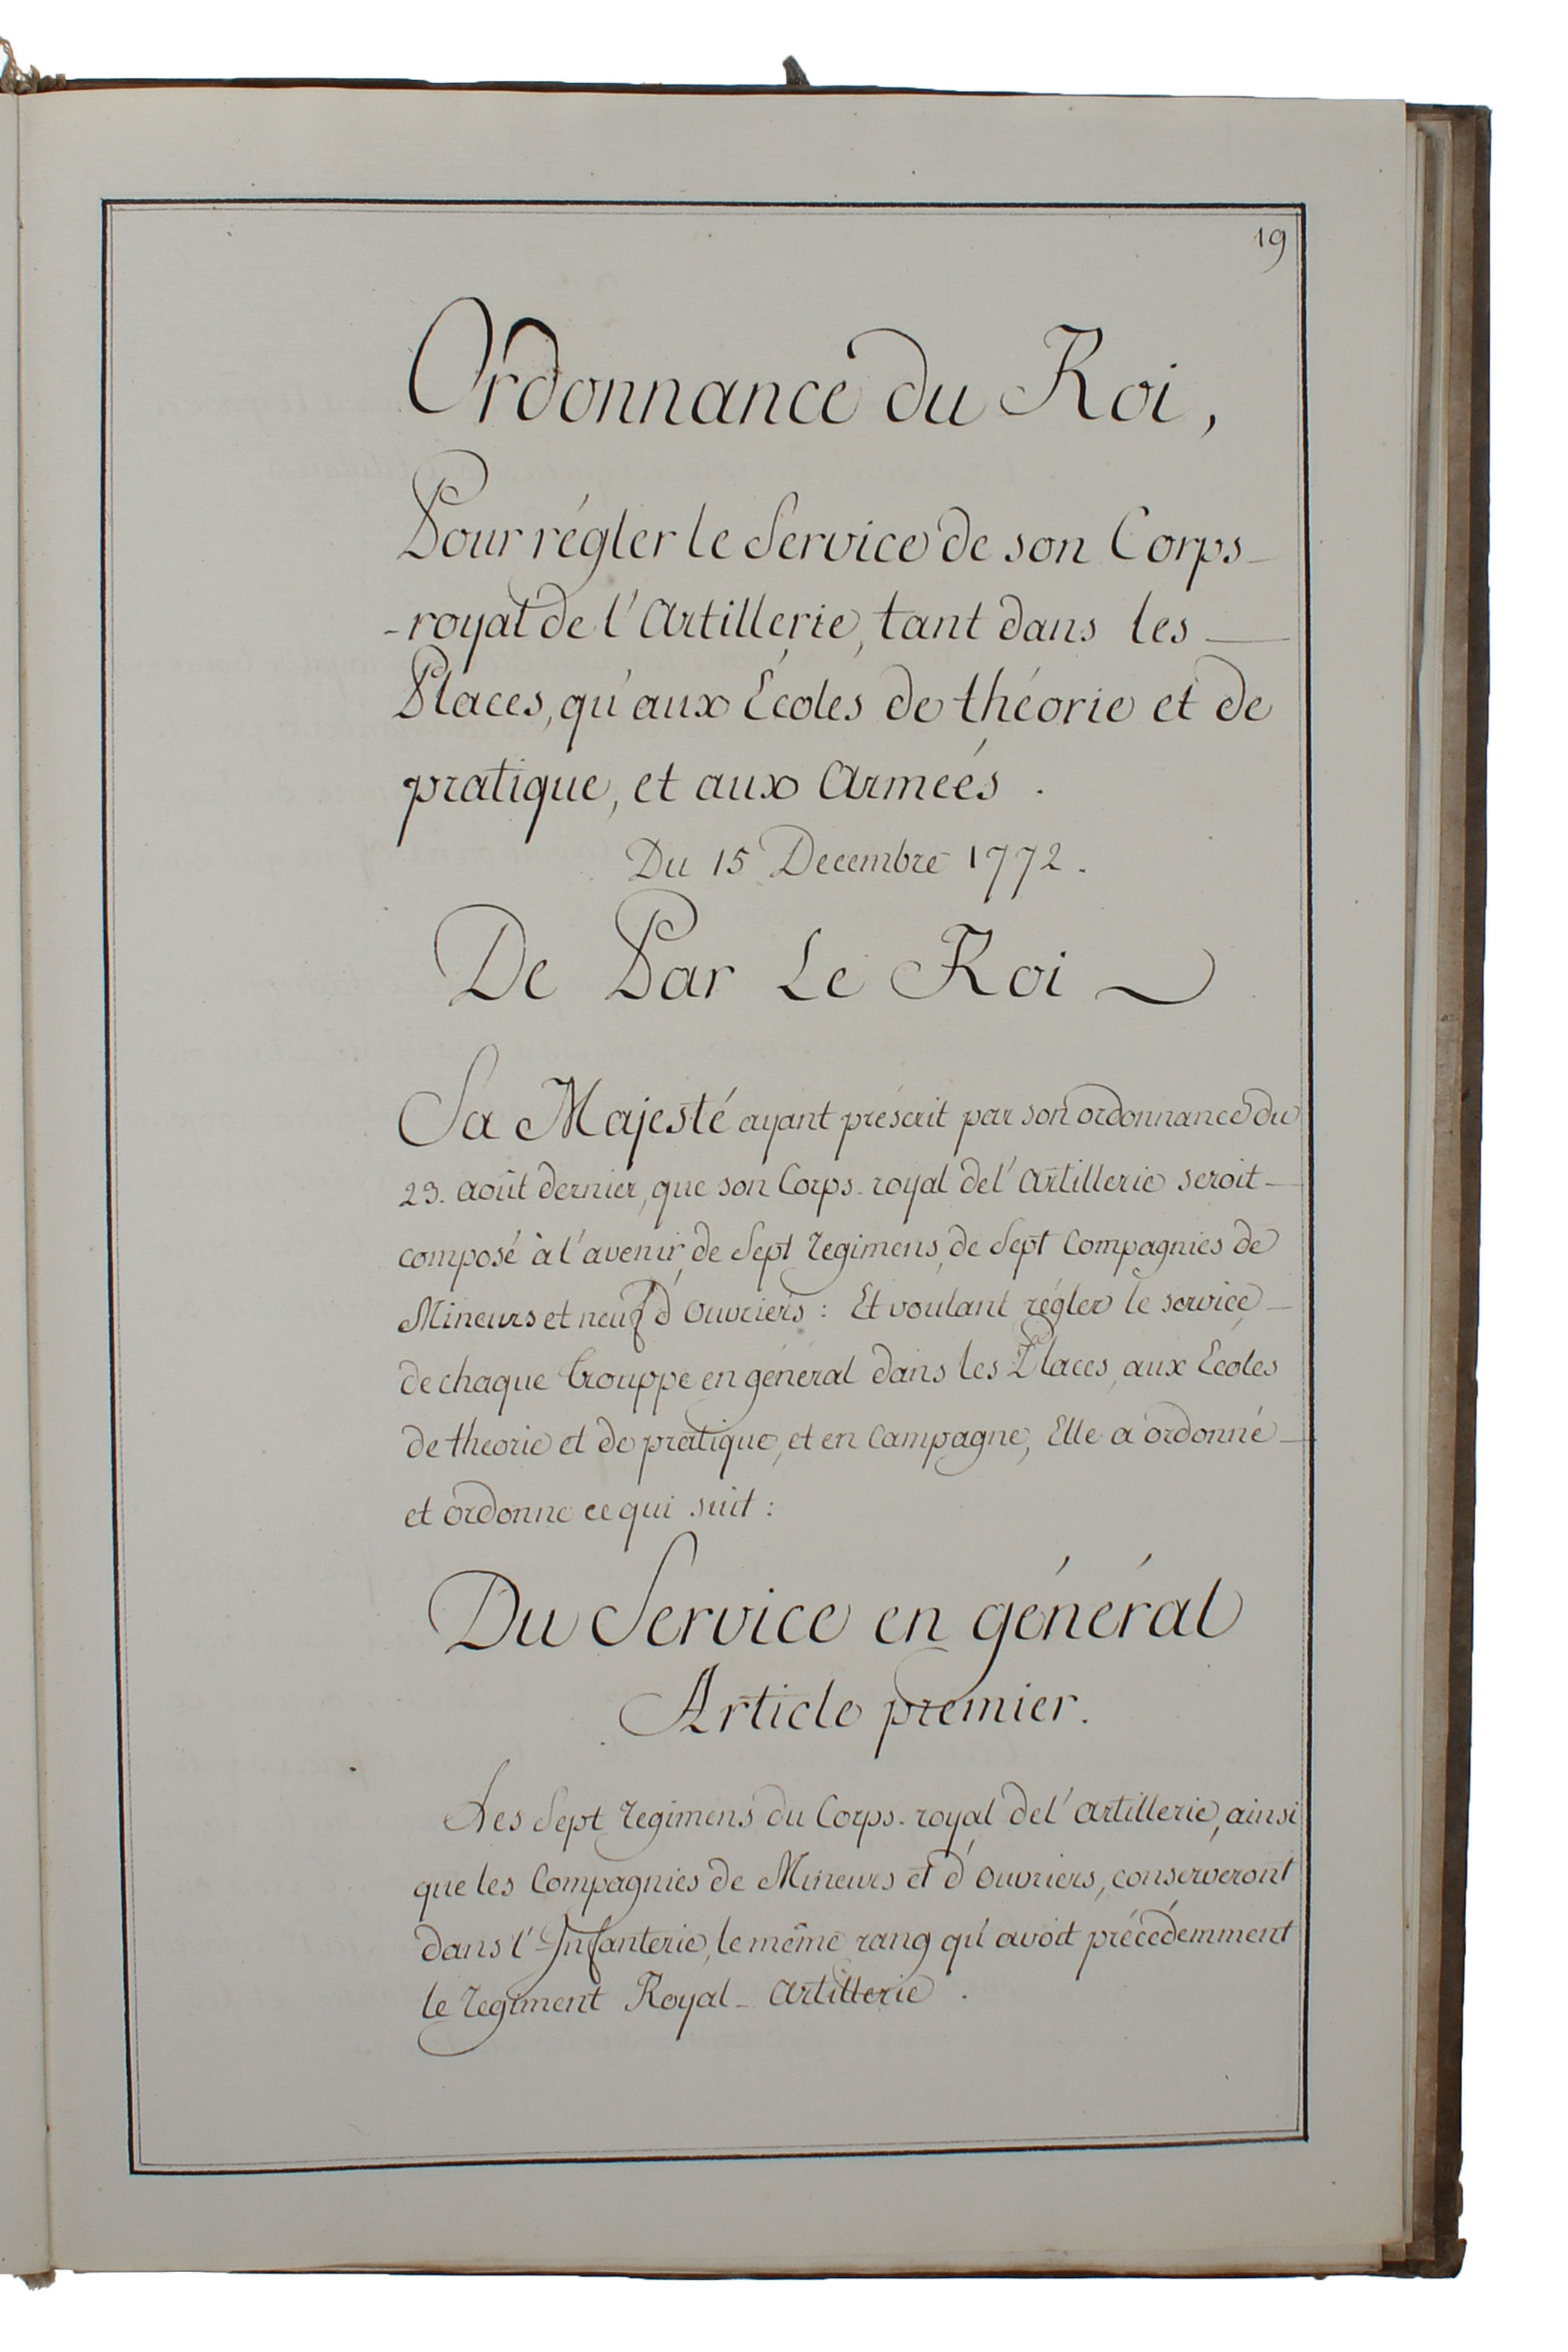 19
Ordonnance du Roi,
Pour régler le Service de son Corps-
-royal de l'Artillerie, tant dans les
Places, qu'aux Écoles de théorie et de
pratique, et aux Armeés.
Du 15 Decembre 1772.
De Par Le Roi
Sa Majesté ayant préscrit par son ordonnance du
23. août dernier, que son Corps-royal de l'Artillerie seroit
composé à l'avenir, de Sept regimens, de Sept Compagnies de
Mineurs et neuf d'Ouvriers : Et voulant régler le service,
de chaque trouppe en géneral dans les Places, aux Ecoles
de theorie et de pratique, et en Campagne, Elle a ordonné
et ordonne ce qui suit :
Du Service en général
Article premier.
Les Sept regimens du Corps-royal de l'Artillerie, ainsi
que les Compagnies de Mineurs et d'Ouvriers, conserveront
dans l'Infanterie, le même rang qu'avoit précédemment
le regiment Royal-Artillerie.